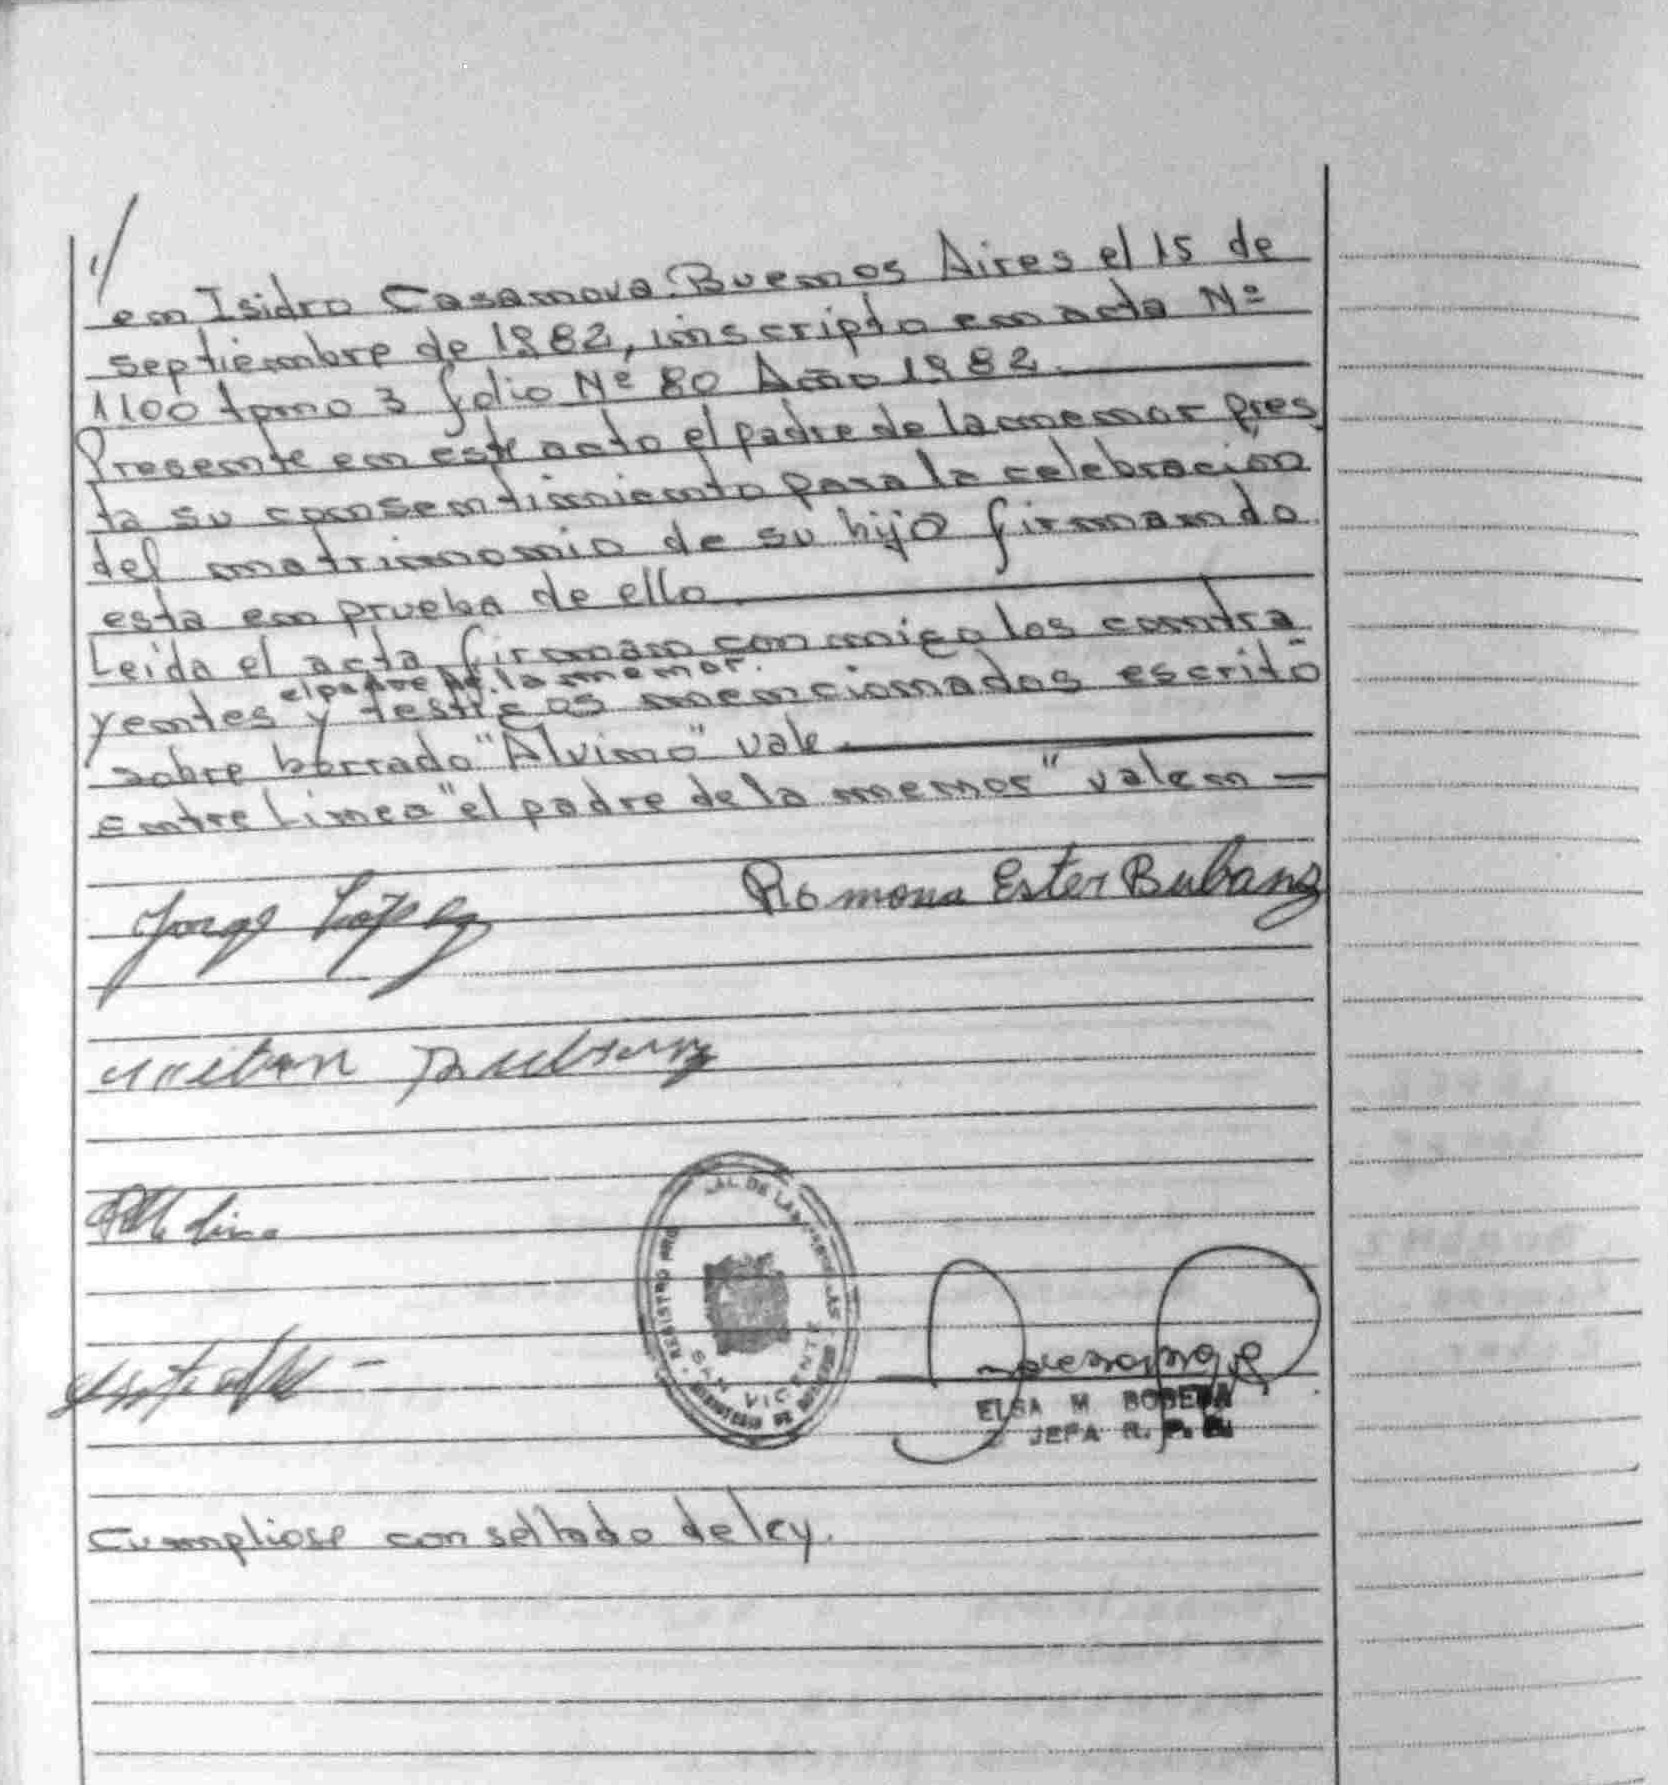 //
en Isidro Casanova. Buenos Aires el 15 de
septiembre de 1982, inscripto en acta Nº
1100 tomo 3 folio Nº 80 Año 1982.
Presente en este acto el padre de la menor pres
ta su consentimiento para la celebración
del matrimonio de su hija firmando
esta en prueba de ello
Leida el acta, firman conmigo los contra
el padre de la menor.
yentes y testigos mencionados escrito
sobre borrado "Alvino" vale
Entre linea "el padre de la menor" valen
Jorge López
Ramona Ester Bubanz
Bubanz
REGISTRO
SAN VICENTE
ELSA M. BODEGA
JEFA R. P. 
Cumpliose con sellado de ley.